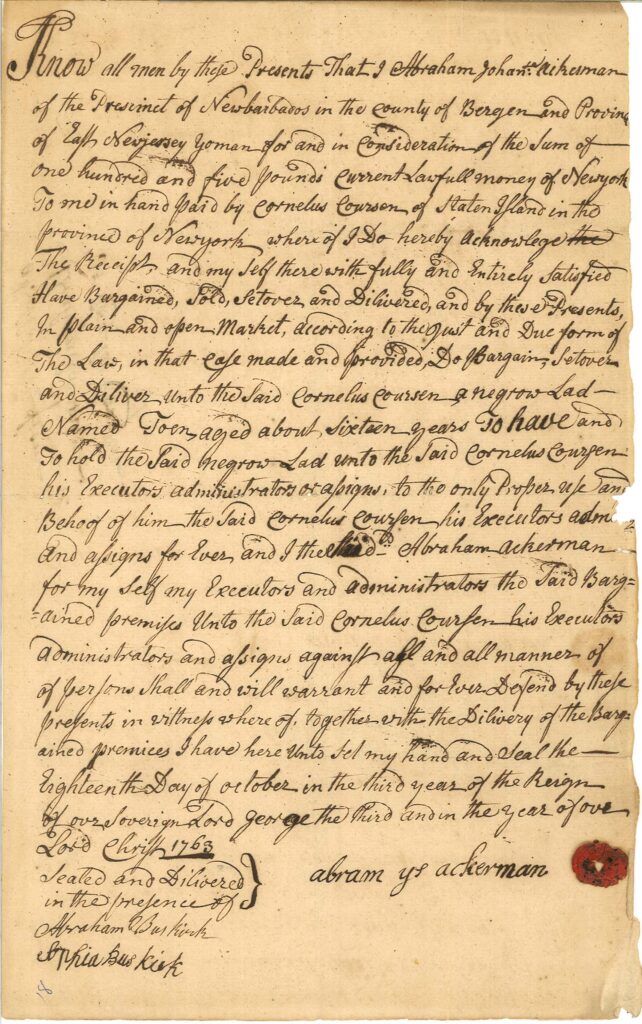 Know all men by these Presents That I Abraham Johans Ackesman
of the Precinct of Newbarbados in the County of Bergen and Provinc
of East Newjersey Yoman for and in Consideration of the Sum of
one hundred and five pounds Current Lawfull money of Newyork
To me in hand paid by Cornelus Coursen of Staten Island in the
province of Newyork where of I Do hereby Acknowlege the
The Receipt and my Self there with fully and Entirely Satisfied
Have Bargained, Sold, Setover, and Dilivered, and by these Presents,
In plain and open Market, according to the Just and Due form of
The Law, in that Case made and provided, Do Bargain, Setover
and Diliver Unto the Said Cornelus Coursen a negrow Lad
Named Toen, aged about Sixteen years To have and
To hold the Said negrow Lad unto the Said Cornelus Coursen
his Executors administrators or assigns, to the only Proper use and
Behoof of him the Said Cornelus Coursen his Executors adm
and assigns for Ever and I the Abraham Ackerman
for my Self my Executors and administrators the Said Barg=
=ained premises Unto the Said Cornelus Coursen his Executors
administrators and assigns against all and all manner of
of persons Shall and will warrant and for Ever Defend by these
presents in wittness where of, together with the Dilivery of the Barg
ained premices I have here Unto Set my hand and Seal the
Eighteenth Day of october in the third year of the Reign
of our Sovereign Lord george the Third and in the year of our
Lord Christ 1763
Sealed and Dilivered
in the presence of
abram ys ackerman
Abraham Buskirk
Sophia Buskirk
18